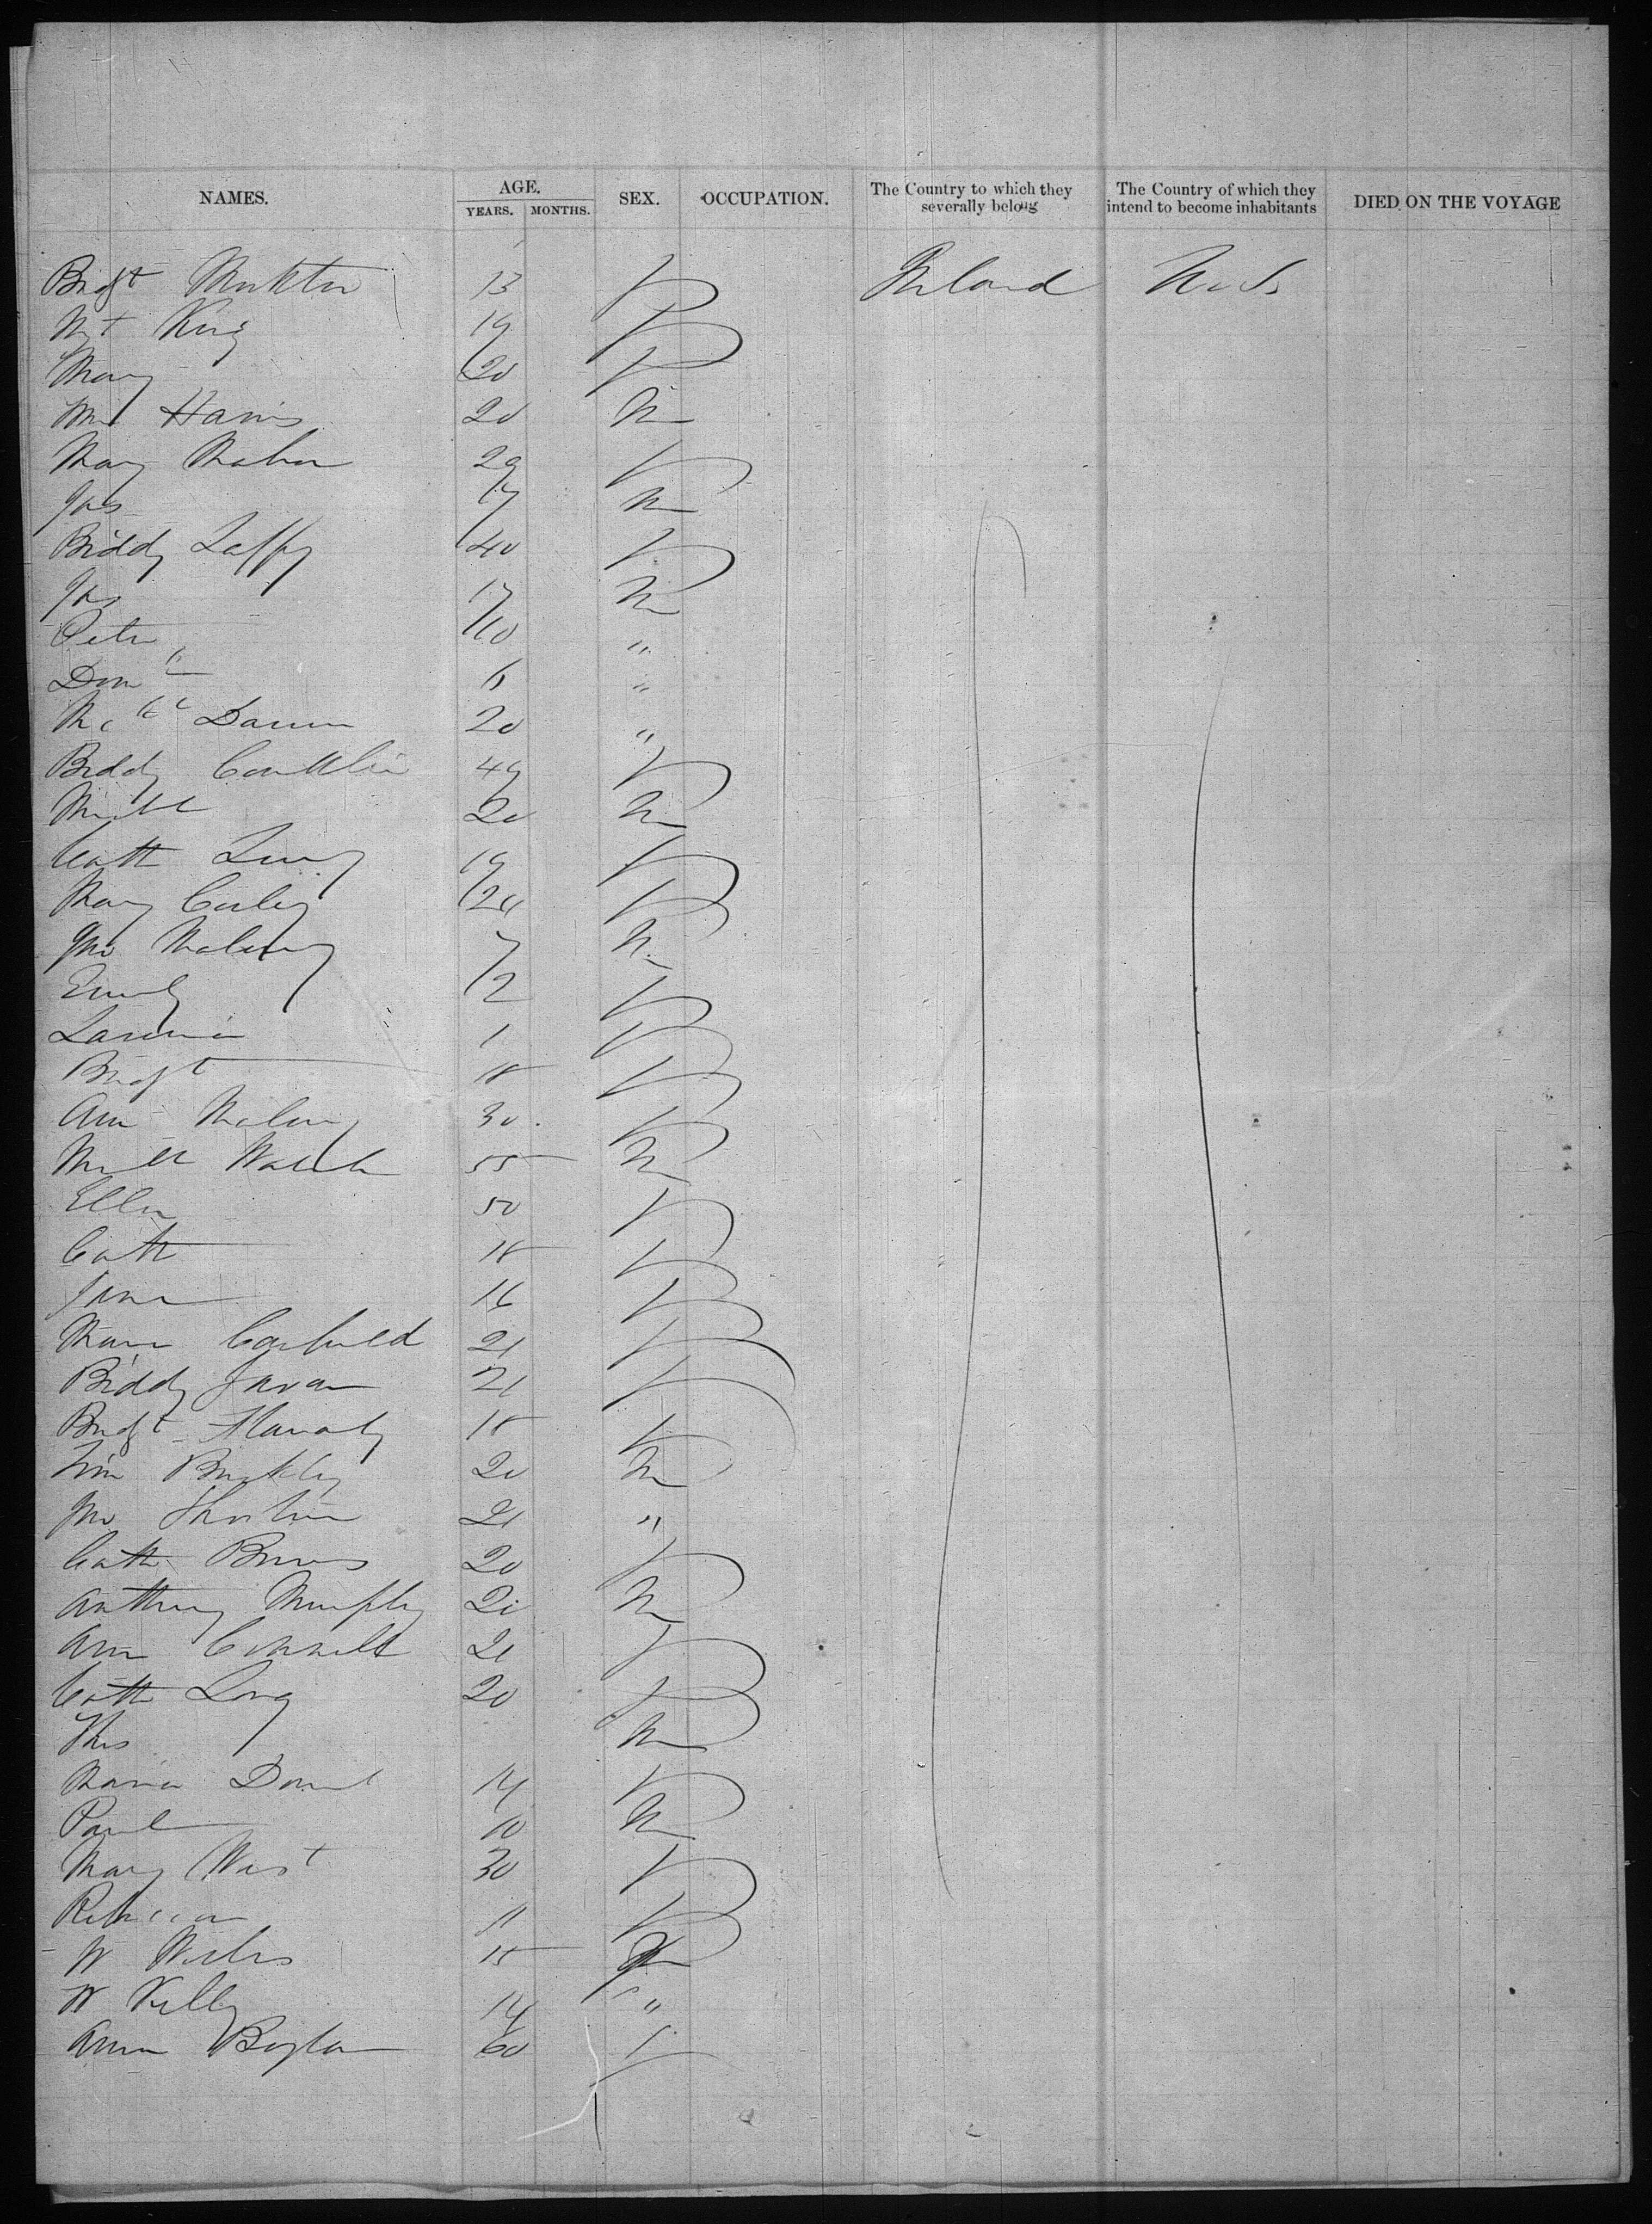 NAMES. AGE. SEX. OCCUPATION. The Country to which they severally belong The Country of which they intend to become inhabitants DIED ON THE VOYAGE
YEARS. MONTHS.
Bridgt 13 f Ireland U.S.
Mgt King 19 f
Mary 20 f
Wm Harris 20 m
Mary Mahon 29 f
Jas 17 m
Biddy Laffy 40 f
Jas 17 m
Peter 10 "
Domk 6 "
20 "
Biddy 49 f
Michl 20 m
Cath 19 f
Mary Curley 20 f
Jno Maloney 7 m
Emily 2 f
Lavinia 1 f
Bridgt 18 f
Ann Malony 30 f
Michl Walsh 55 m
Ellen 50 f
Cath 18 f
Jane 16 f
Maria 21 f
Biddy 21 f
Bridgt 18 f
Tim Buckley 20 m
Jno 21 "
Cath Burns 20 f
Anthony Murphy 20 m
Ann Connell 21 f
Cath Long 20 f
Thos m
Maria 14 f
Paul 10 m
Mary West 30 f
Rebecca 11 f
W 15 m
W Kelly 14 "
Ann Boylan 60 f